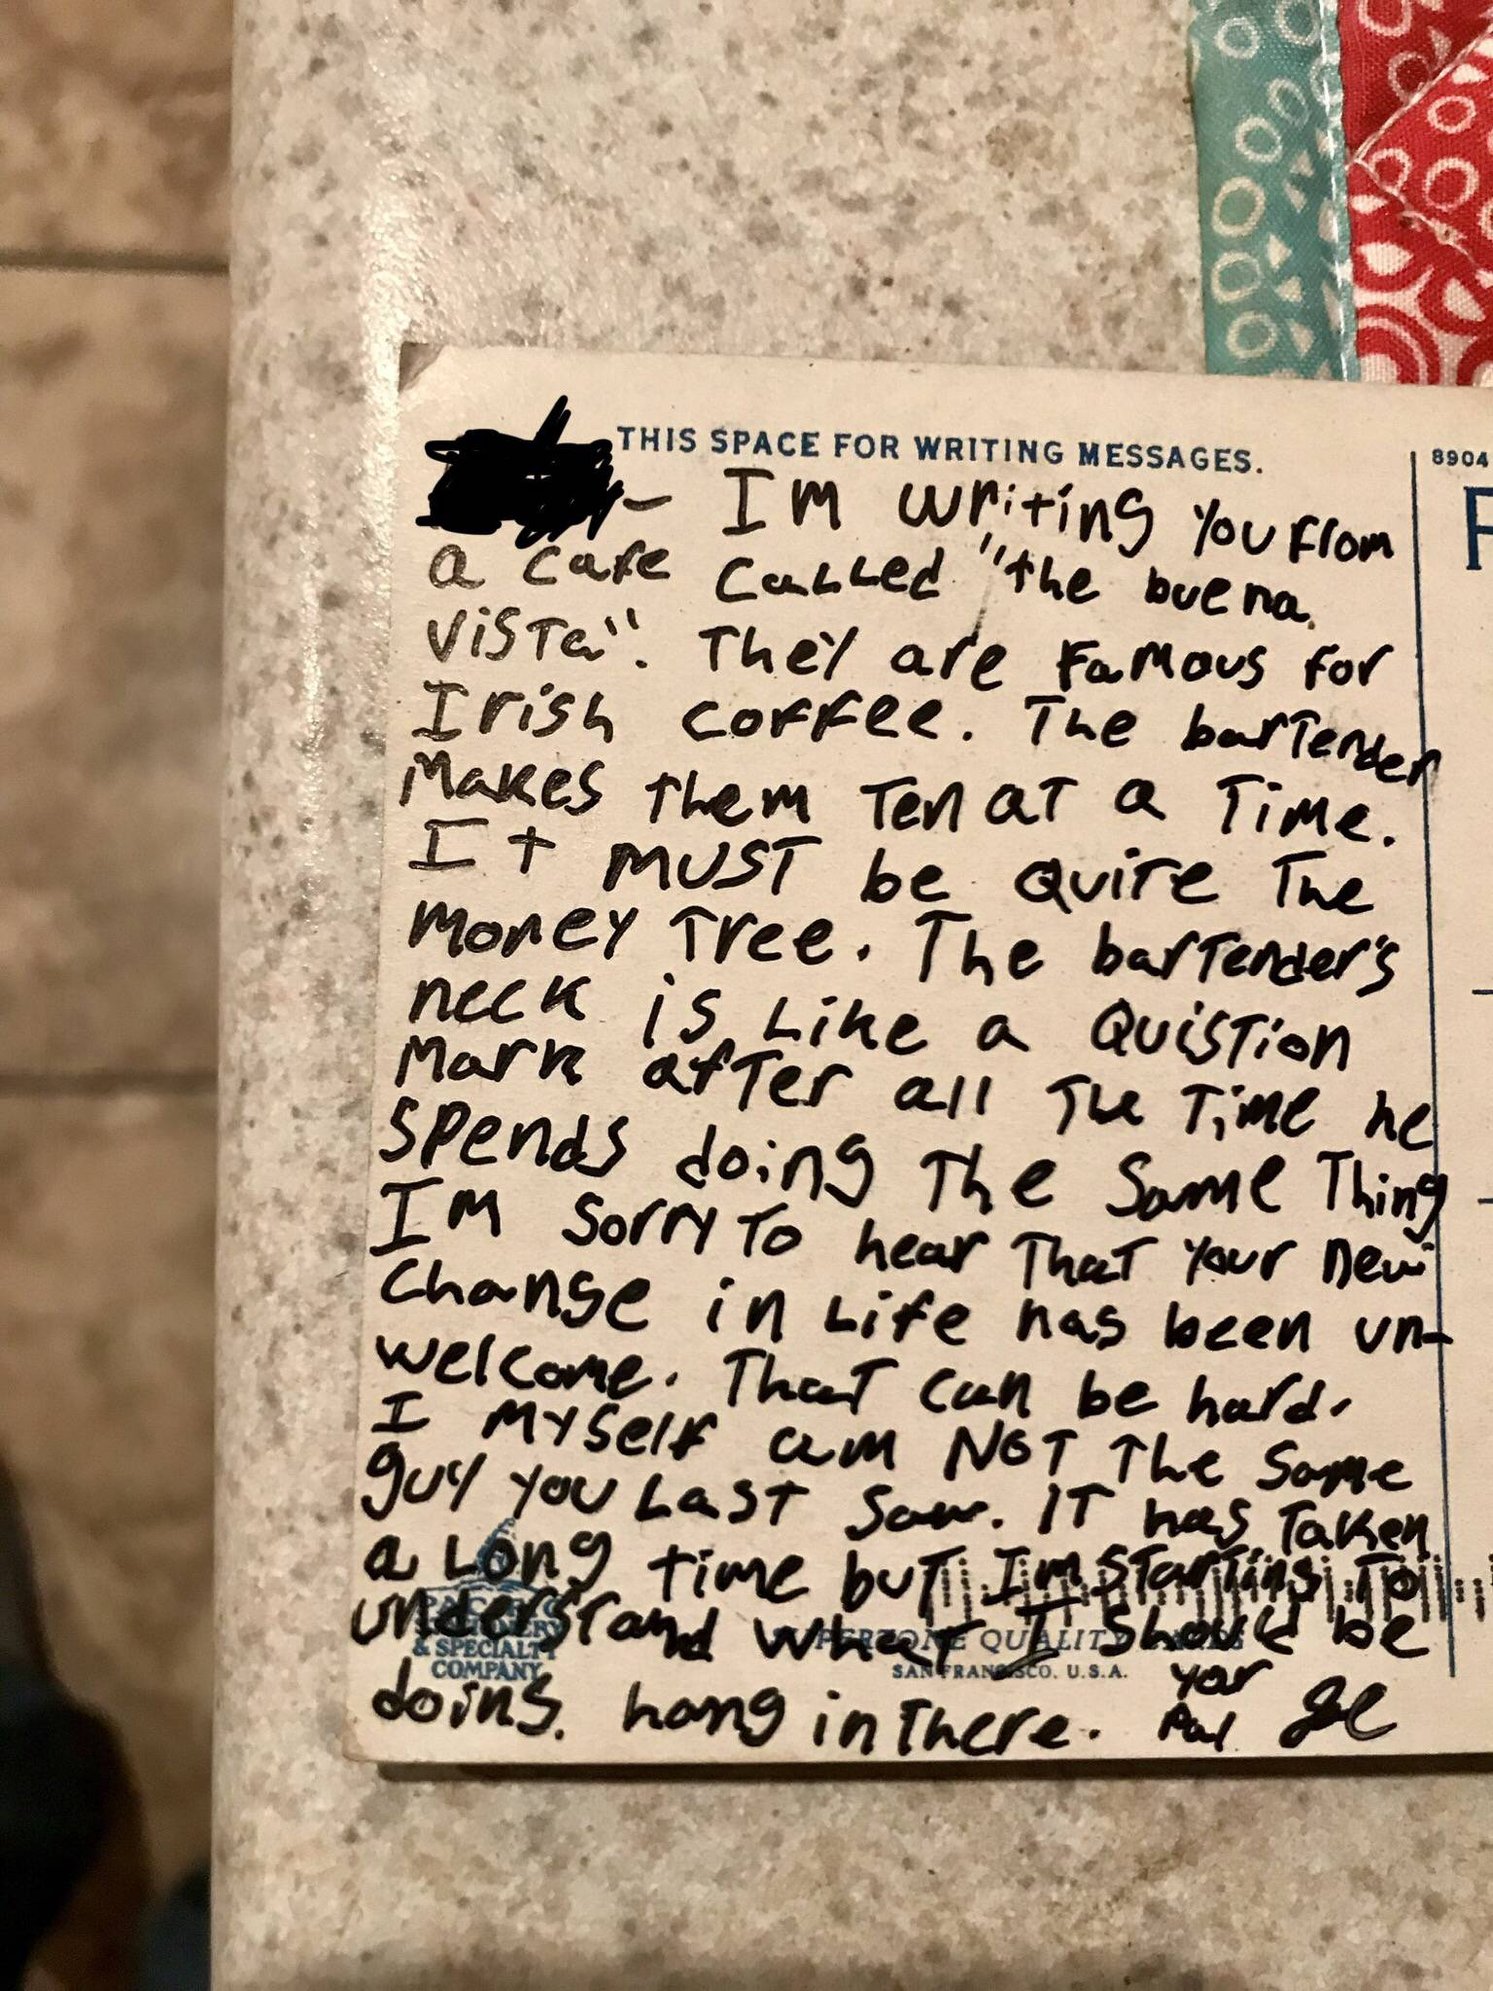 THIS SPACE FOR WRITING MESSAGES.
8904
F
- Im writing you from
a cafe called "the buena
vista". They are famous for
Irish coffee. The bartender
makes them ten at a time.
It must be quite the
money tree. The bartender's
neck is like a quistion
mark after all the time he
spends doing the same thing
Im sorry to hear that your new
change in life has been un-
welcome. That can be hard.
I myself am not the same
guy you last saw. It has taken
a long time but Im starting to
understand what I should be
doing. hang in there. your Pal Joe
& SPECIALTY
COMPANY
QUALITY
SAN FRANCISCO, U.S.A.